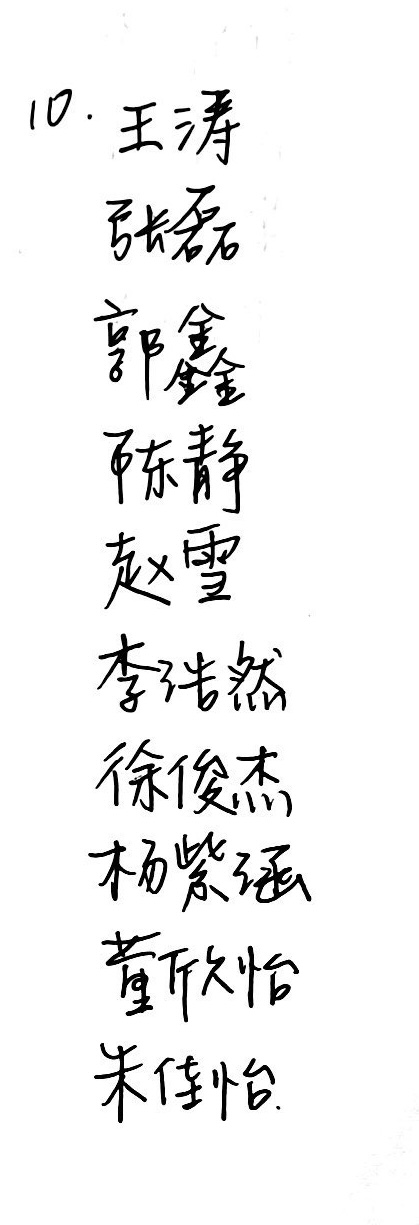 10. 王涛
张磊
郭鑫
陈静
赵雪
李浩然
徐俊杰
杨紫涵
董欣怡
朱佳怡.